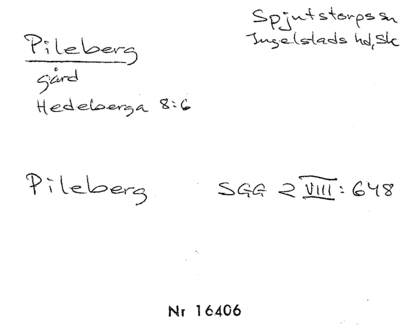 Pileberg
gård
Hedeberga 8:6
Spjutstorps sn
Ingelstads hd, Sk
Pileberg SGG 2 VIII: 648
Nr 16406